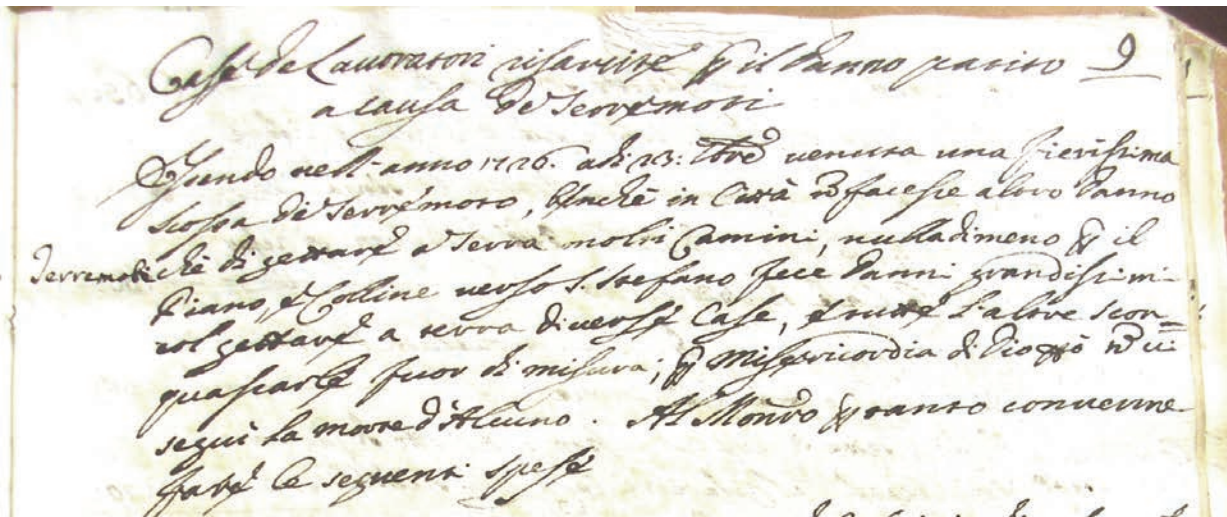 Case de Lavoratori risarcite p il Danno patito 9
a causa de Terremoti
Essendo nell'anno 1726. adi 23: venuta una fierissima
scossa de Terremoto, benchè in Città nõ facesse altro Danno
Terremoti
chè di gettare a Terra molti Camini, nulladimeno p il
Piano, e Colline verso S. Stefano fece Danni grandissimi
col gettare a terra diverse Case, e tutte l'altre scon
quassarle fuor di misura; p Misericordia di Dio però nõ vi
seguì la morte d'Alcuno. Al Monro p tanto convenne
fare le seguenti spese